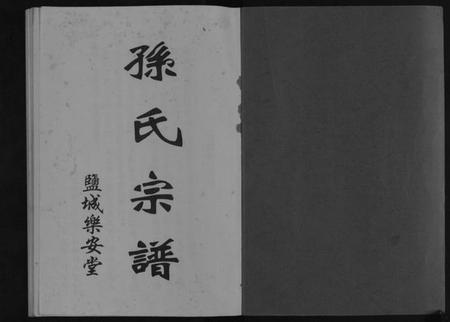 孫氏宗譜
鹽城樂安堂